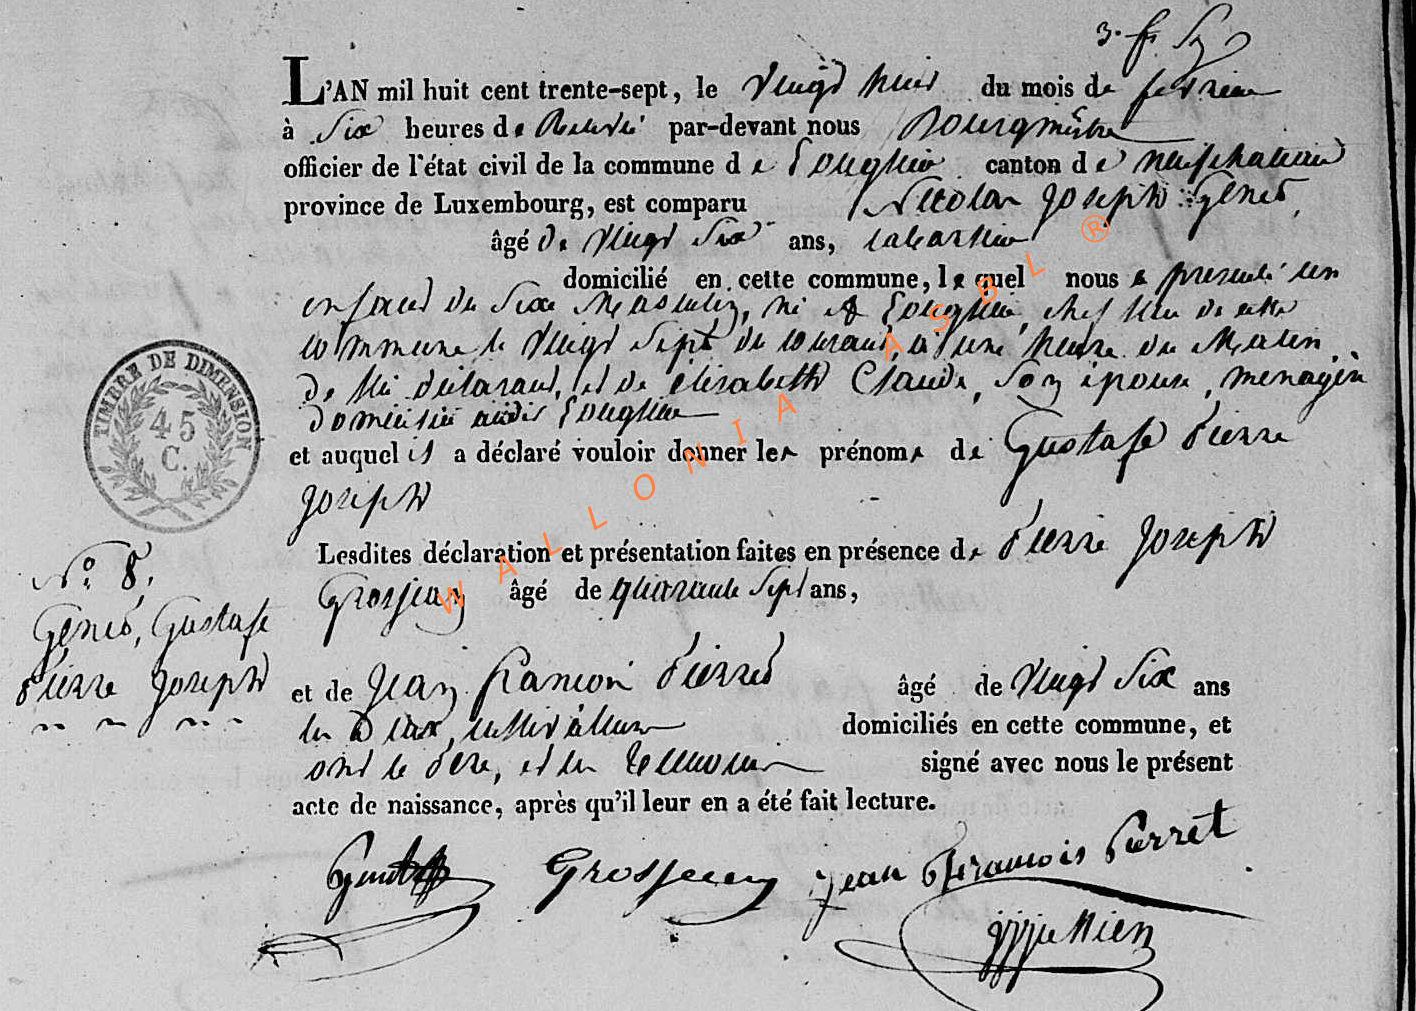 3. fr.
L'AN mil huit cent trente-sept, le Vingt huit du mois de fevrier
à Six heures de Relevée par-devant nous Bourgmestre
officier de l'état civil de la commune de Longlier canton de neufchateau
province de Luxembourg, est comparu Nicolas Joseph Genet,
âgé de Vingt Six ans, cabartier
domicilié en cette commune, lequel nous a presenté un
enfant du Sexe Masculin, né à Longlier, chef lieu de cette
commune, le Vingt Sept du courant, à une heure du Matin
de lui déclarant, et de élisabeth Claude, Son épouse, menagère
domiciliée audit Longlier
et auquel il a déclaré vouloir donner les prénoms de Gustafe Pierre
Joseph
Lesdites déclaration et présentation faites en présence de Pierre Joseph
Grosjean âgé de quarante Sept ans,
et de Jean françois Pierret âgé de Vingt Six ans
les deux cultivateurs domiciliés en cette commune, et
ont le Père, et les Temoins signé avec nous le présent
acte de naissance, après qu'il leur en a été fait lecture.
Grosjean Jean François Pierret
TIMBRE DE DIMENSION
45
C.
N° 8,
Genet, Gustafe
Pierre Joseph
WALLONIA ASBL ®